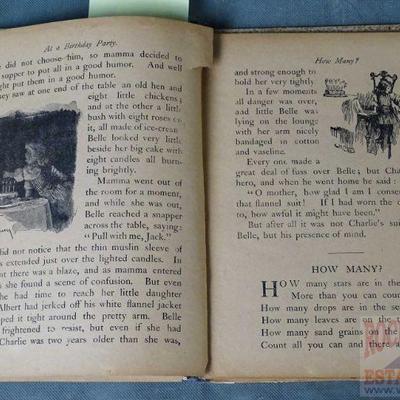 At a Birthday Party.
did not choose him, so mamma decided to
supper to put all in a good humor. And well
ght put them in a good humor.
ey saw at one end of the table an old hen and
eight little chickens;
and at the other a little
bush with eight roses on
it, all made of ice-cream.
Belle looked very little
beside her big cake with
eight candles all burn-
ing brightly.
Mamma went out of
the room for a moment,
and while she was out,
Belle reached a snapper
across the table, saying:
"Pull with me, Jack."
did not notice that the thin muslin sleeve of
s extended just over the lighted candles. In
nt there was a blaze, and as mamma entered
s she found a scene of confusion. But even
she had time to reach her little daughter
Albert had jerked off his white flannel jacket
ped it tight around the pretty arm. Belle
frightened to resist, but even if she had
Charlie was two years older than she was,
How Many?
and strong enough to
hold her very tightly.
In a few moments
all danger was over,
and little Belle was
lying on the lounge
with her arm nicely
bandaged in cotton and
vaseline.
Every one made a
great deal of fuss over Belle; but Char
hero, and when he went home he said:
"O mother, how glad I am I conse
that flannel suit! If I had worn the
to, how awful it might have been."
But after all it was not Charlie's suit
Belle, but his presence of mind.
HOW MANY?
HOW many stars are in the
More than you can count
How many drops are in the se
How many leaves are on the
How many sand grains on the
Count all you can and there
ESTATE